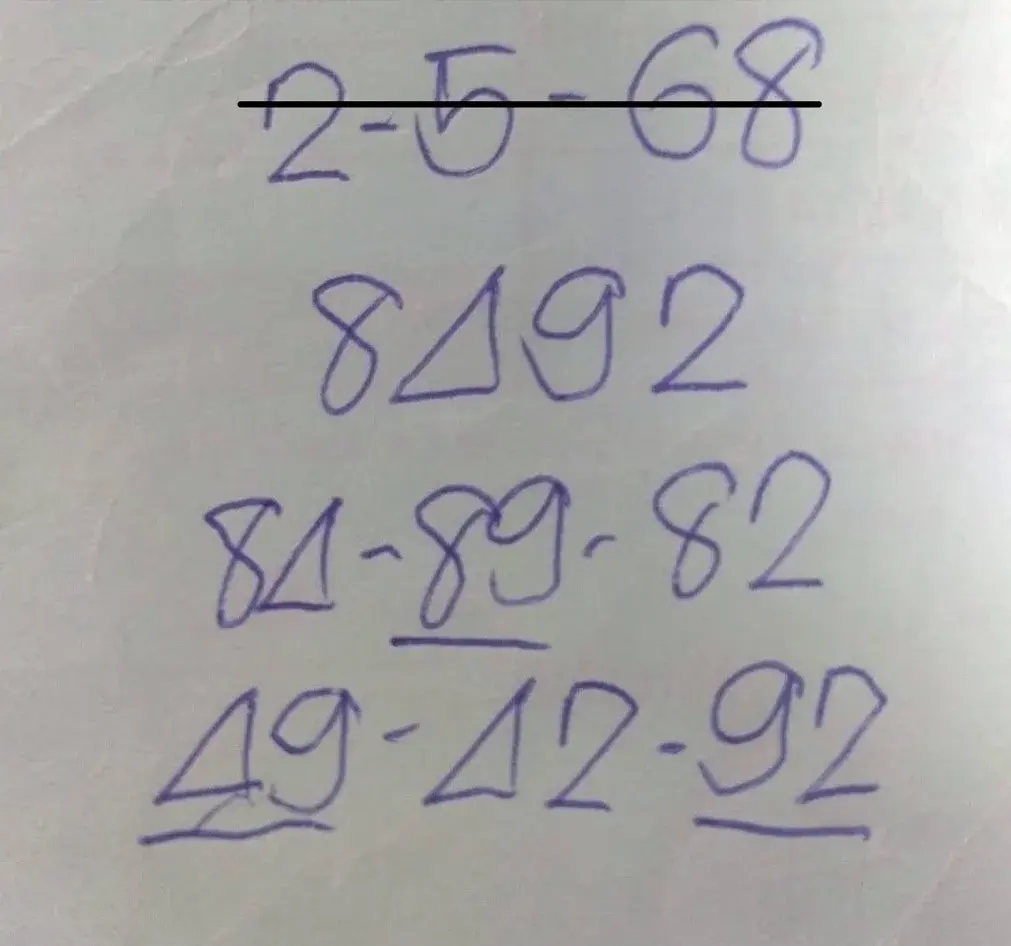 2-5-68
8492
84-89-82
49-42-92